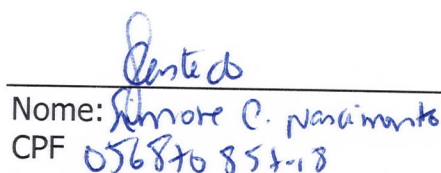 Nome: Simone C. Nascimento
CPF 056870857-18